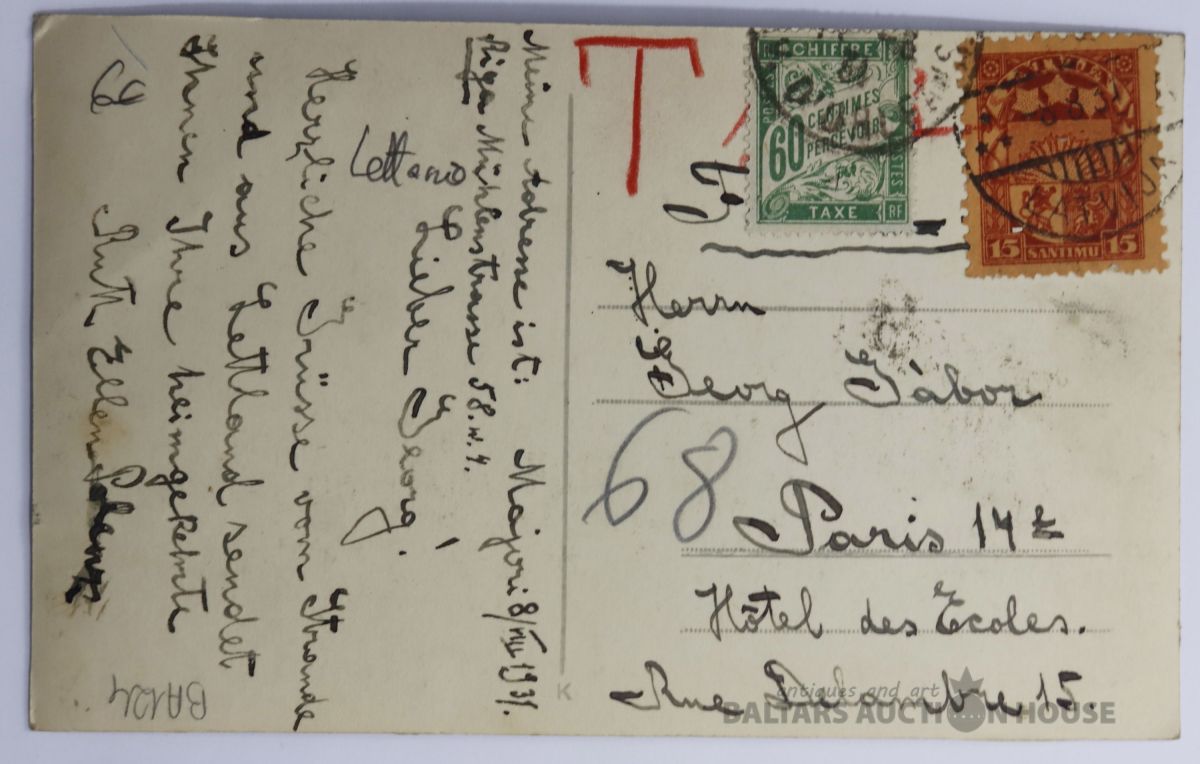 Meine Adresse ist: Majori 8/VIII 1931.
Riga Mühlenstrasse 58. w. 4.
Lieber Georg!
Lettonie
Herzliche Grüsse vom Strande
und aus Lettland sendet
Ihnen Ihre heimgekehrte
Ruth Ellen
BA124
T
CHIFFRE
60 CENTIMES
PERCEVOIR
POSTES
TAXE
RF
LATVIJA
15 SANTIMU 15
Herrn
Georg Gábor
68
Paris 14e
Hôtel des Ecoles.
Rue Delambre 15.
K
antiques and art
BALTARS AUCTION HOUSE